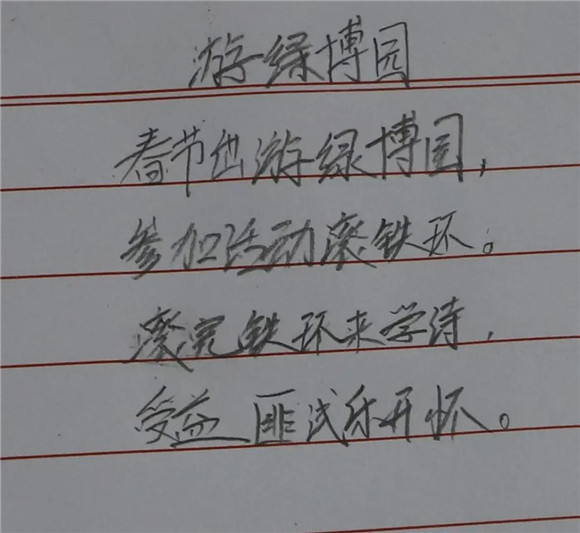 游绿博园
春节出游绿博园，
参加活动滚铁环。
滚完铁环来学诗，
受益匪浅乐开怀。